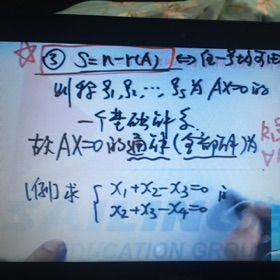 ③ S=n-r(A) ⇔ 任一
则称 ξ₁,ξ₂,…,ξₛ为 AX=0的
一个基础解系
故 AX=0的通解(全部解)为
[例] 求 { x₁+x₂-x₃=0
x₂+x₃-x₄=0
EDUCATION GROUP